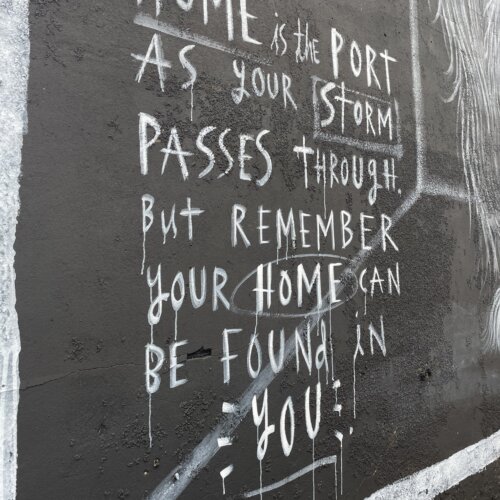 HOME is the PORT
AS YOUR STORM
PASSES THROUGH.
But REMEMBER
YOUR HOME CAN
BE FOUNd iN
YOU